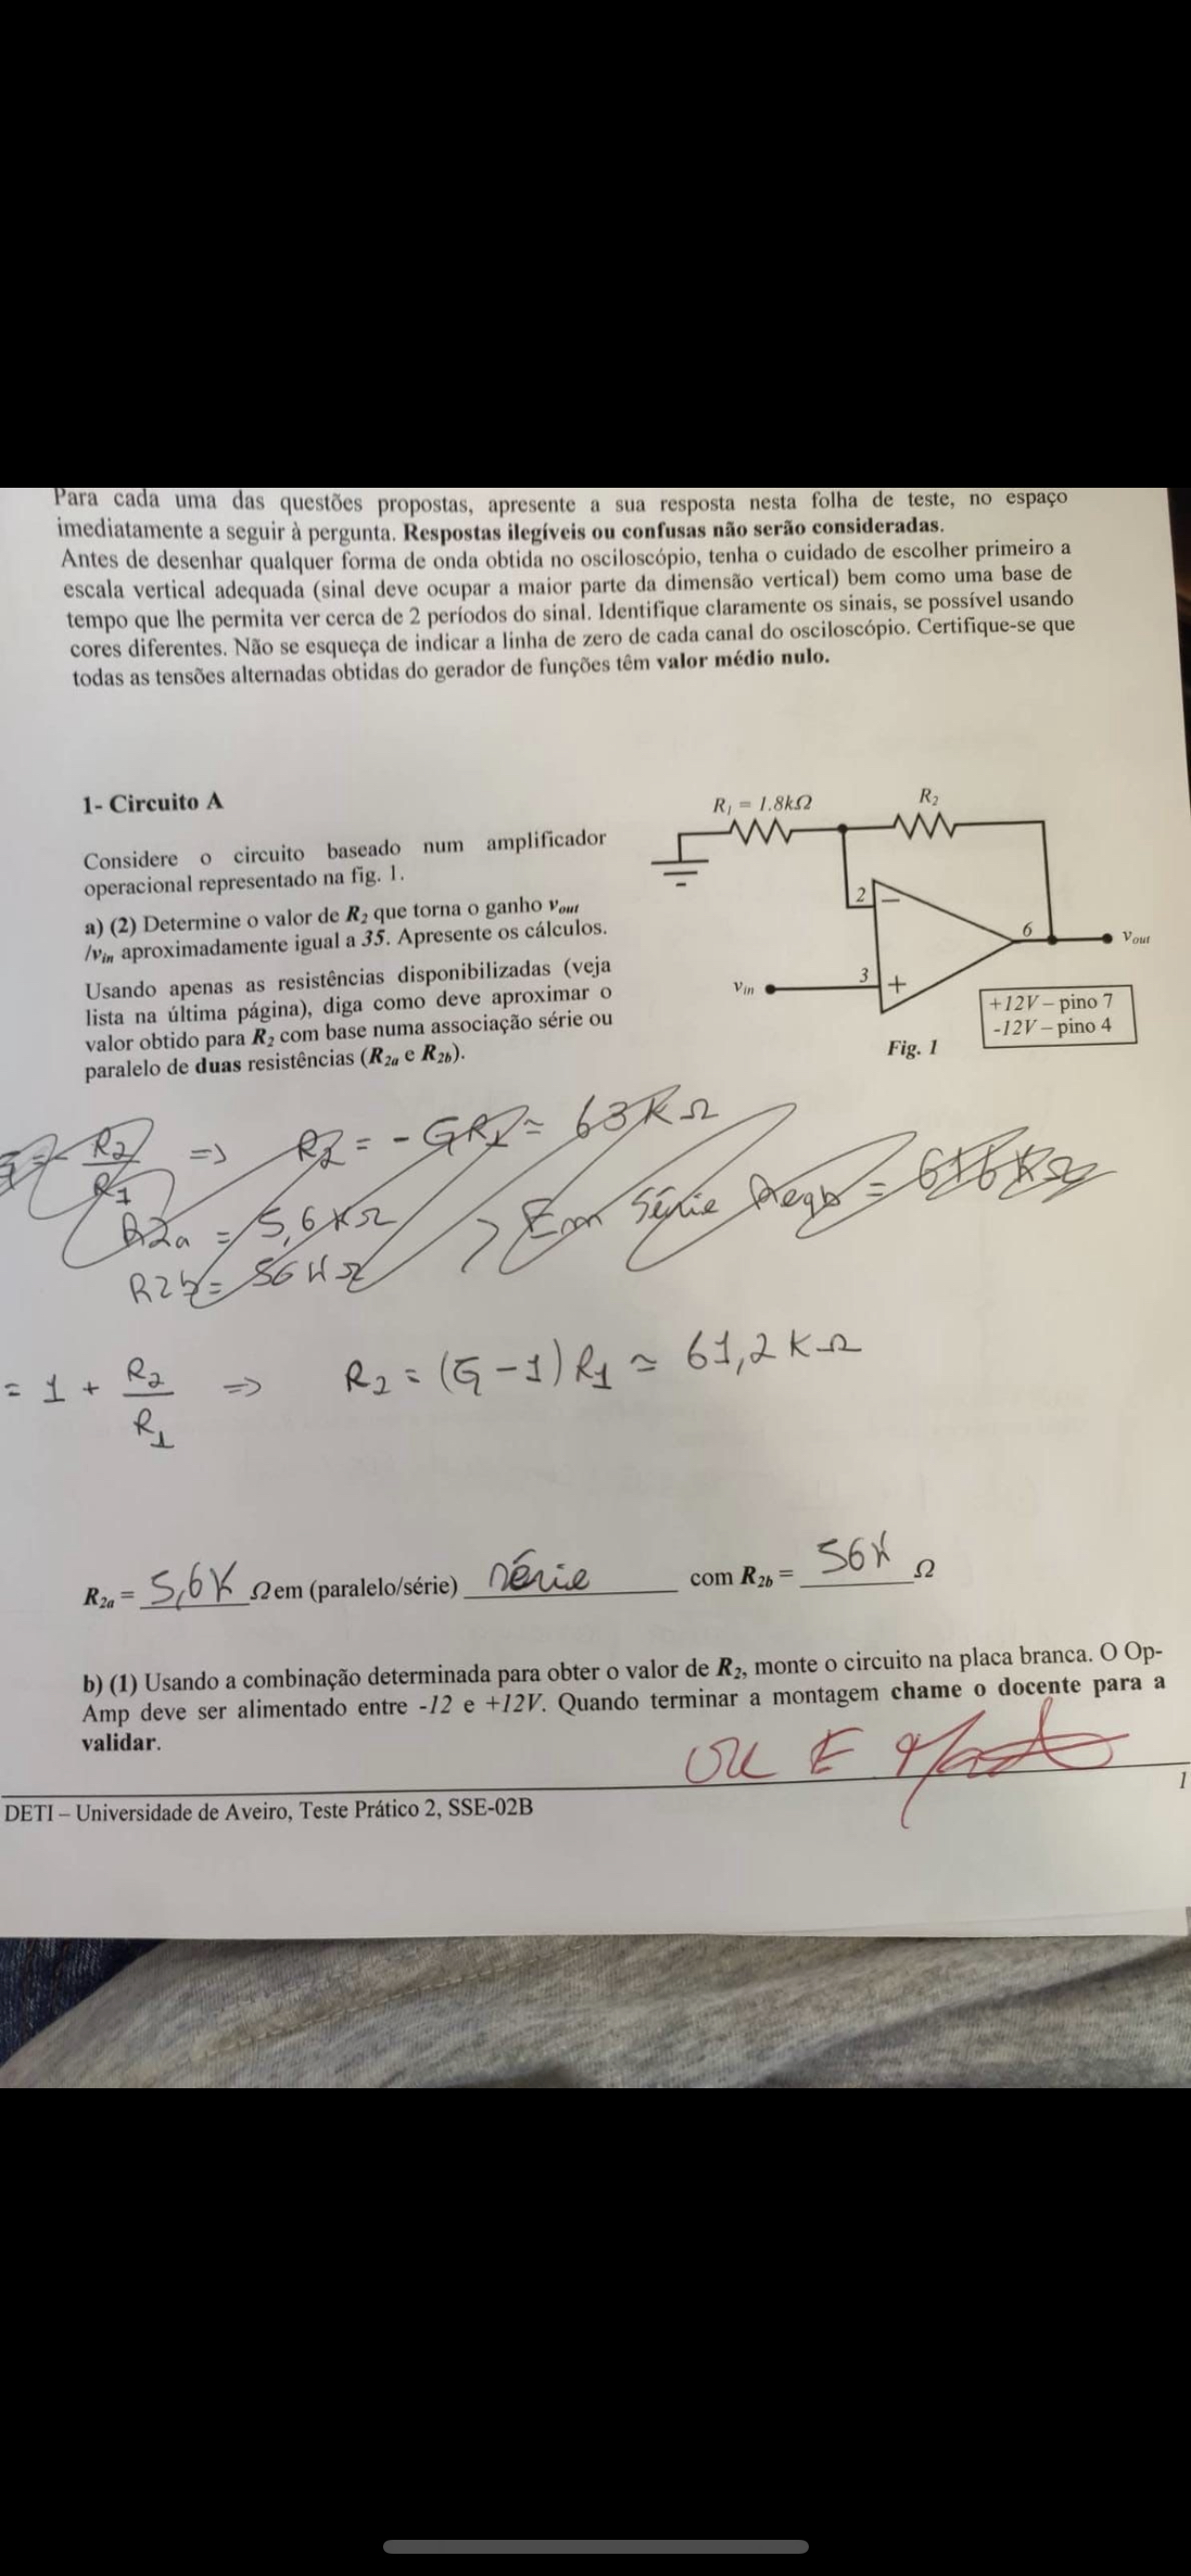 Para cada uma das questões propostas, apresente a sua resposta nesta folha de teste, no espaço
imediatamente a seguir à pergunta. Respostas ilegíveis ou confusas não serão consideradas.
Antes de desenhar qualquer forma de onda obtida no osciloscópio, tenha o cuidado de escolher primeiro a
escala vertical adequada (sinal deve ocupar a maior parte da dimensão vertical) bem como uma base de
tempo que lhe permita ver cerca de 2 períodos do sinal. Identifique claramente os sinais, se possível usando
cores diferentes. Não se esqueça de indicar a linha de zero de cada canal do osciloscópio. Certifique-se que
todas as tensões alternadas obtidas do gerador de funções têm valor médio nulo.
1- Circuito A
Considere o circuito baseado num amplificador
operacional representado na fig. 1.
a) (2) Determine o valor de R2 que torna o ganho vout
/vin aproximadamente igual a 35. Apresente os cálculos.
Usando apenas as resistências disponibilizadas (veja
lista na última página), diga como deve aproximar o
valor obtido para R2 com base numa associação série ou
paralelo de duas resistências (R2a e R2b).
R1 = 1.8kΩ
R2
2
−
6
vout
3
+
vin
+12V – pino 7
-12V – pino 4
Fig. 1
R2/R1 => R2 = - GR1 ≈ 63KΩ
R2a = 5,6KΩ
Em Série
R2b = 56KΩ
= 1 + R2/R1 => R2 = (G-1) R1 ≈ 61,2 KΩ
R2a = 5,6K Ω em (paralelo/série) série com R2b = 56K Ω
b) (1) Usando a combinação determinada para obter o valor de R2, monte o circuito na placa branca. O Op-
Amp deve ser alimentado entre -12 e +12V. Quando terminar a montagem chame o docente para a
validar.
DETI – Universidade de Aveiro, Teste Prático 2, SSE-02B
1